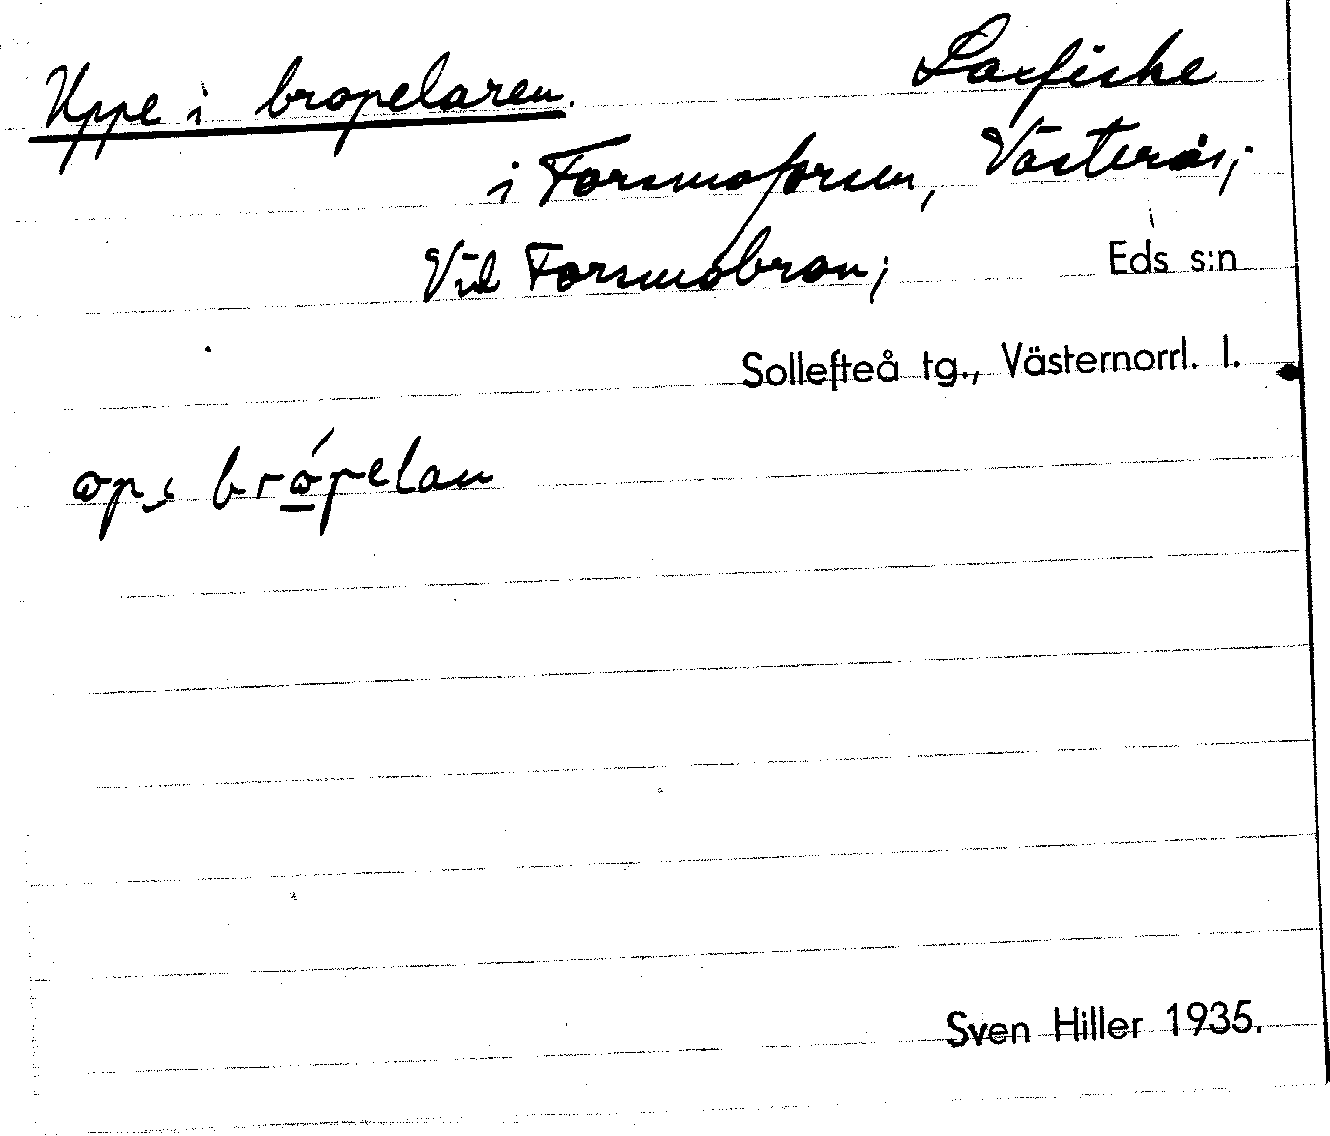 Uppe i bropelaren. Laxfiske
i Forsmoforsen, Västerås;
Vid Forsmobron; Eds s:n
Sollefteå tg., Västernorrl. l.
brópelan
Sven Hiller 1935.